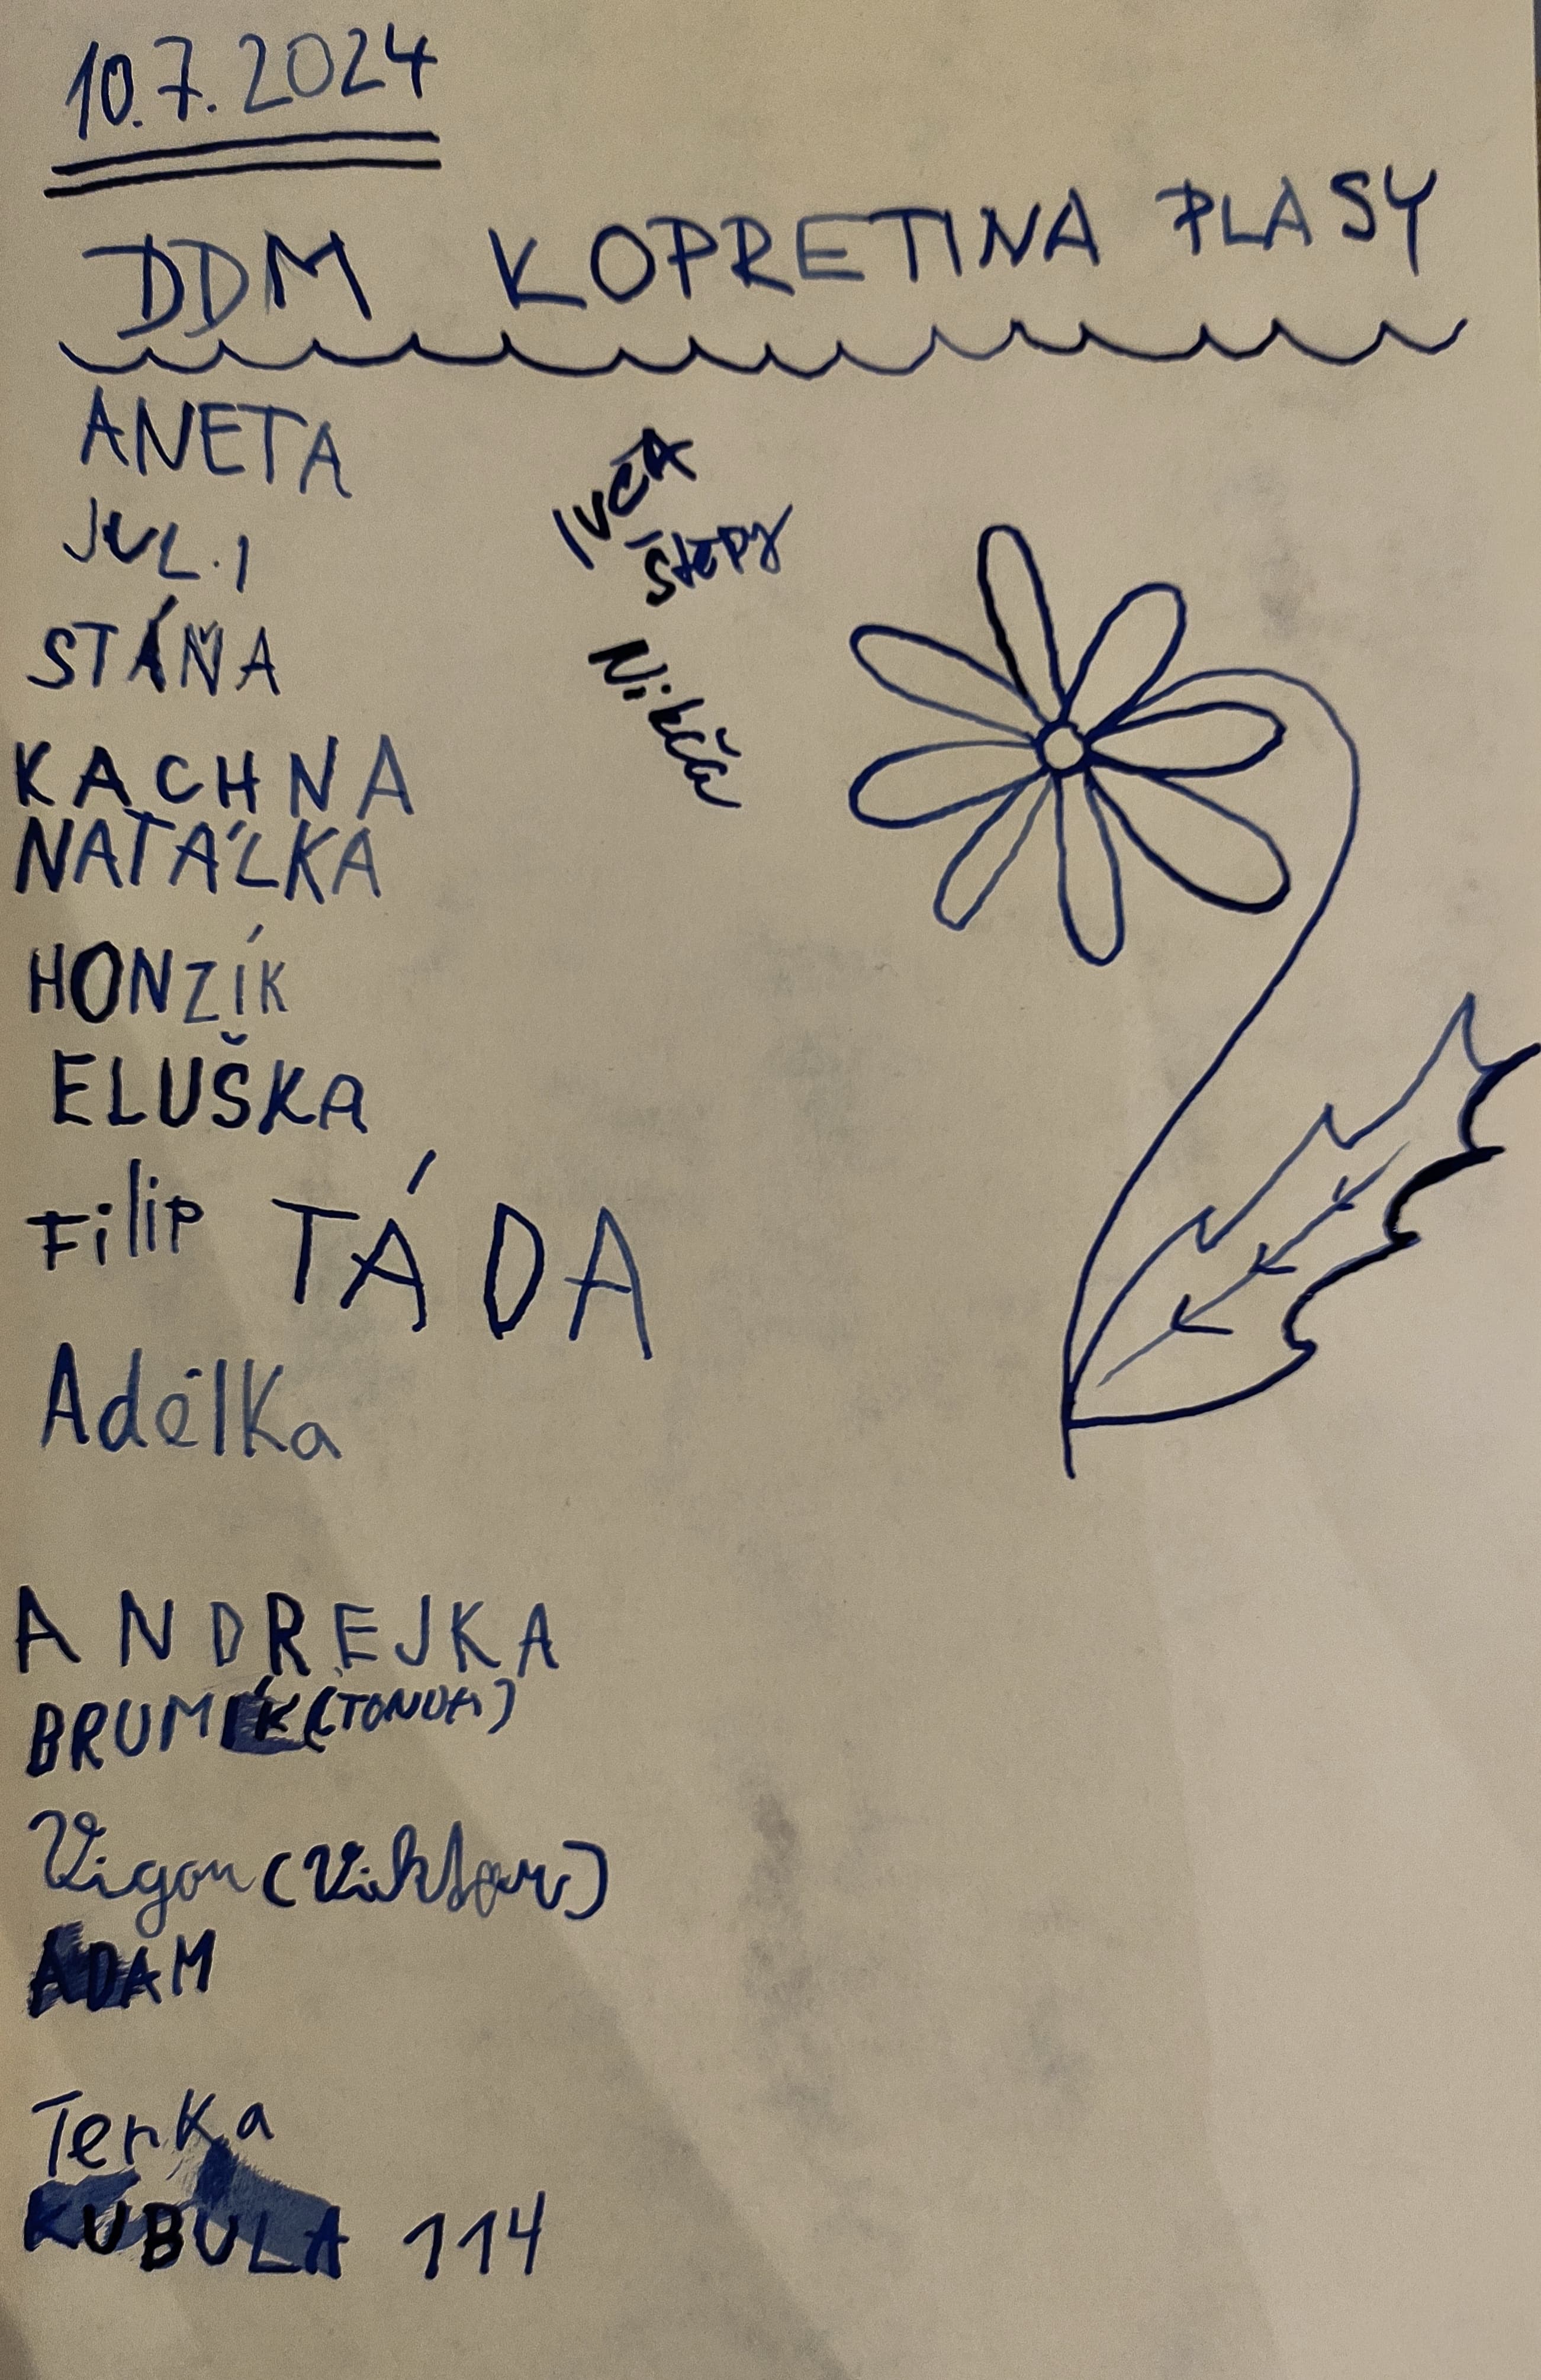 10.7.2024
DDM KOPRETINA PLASY
ANETA
JUL.I
STÁŇA
KACHNA
NATÁLKA
HONZÍK
ELUŠKA
Filip TÁDA
Adélka
ANDREJKA
BRUMÍK (TONDA)
Vigou (Viktor)
ADAM
Terka
KUBULA 114
IVČA
ŠtĚPY
Nikča